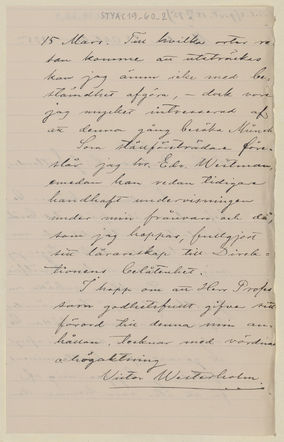 STYAC19-60-2
15 Mars. Till hvilka orter re-
san komme att utsträckas
kan jag ännu icke med be-
stämdhet afgöra, – dock vore
jag mycket intresserad af
att denna gång besöka Münch
Som ställföreträdare före-
slår jag hr. Edv. Westman,
emedan han redan tidigare
handhaft undervisningen
under min frånvaro och då,
som jag hoppas, fullgjort
sitt lärarekall till Direk-
tionens belåtenhet.
I hopp om att Herr Profes
sorn godhetsfullt gifver sitt
förord till denna min an-
hållan, tecknar med vördnad
o högaktning
Victor Westerholm.